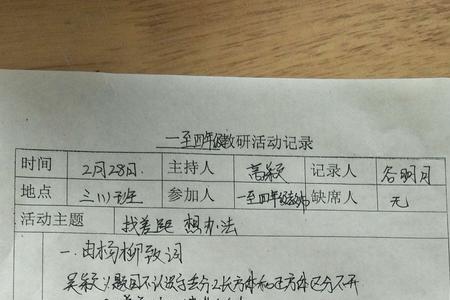 一至四年级教研活动记录
时间 2月28日. 主持人 高颖 记录人 谷明月
地点 三(1)班 参加人 一至四年级教师 缺席人 无
活动主题 找差距 想办法
一.由杨柳致词
吴颖义题因不认 长方体和正方体区分不开